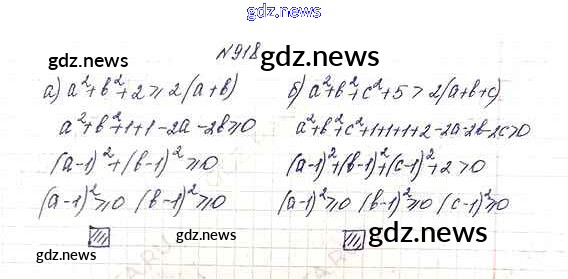 gdz.news
№918
gdz.news
gdz.news
а) a²+b²+2⩾2(a+b)
a²+b²+1+1-2a-2b⩾0
(a-1)²+(b-1)²⩾0
(a-1)²⩾0 (b-1)²⩾0
б) a²+b²+c²+5>2(a+b+c)
a²+b²+c²+1+1+1+2-2a-2b-2c>0
(a-1)²+(b-1)²+(c-1)²+2>0
(a-1)²⩾0 (b-1)²⩾0 (c-1)²⩾0
gdz.news
gdz.news
gdz.news